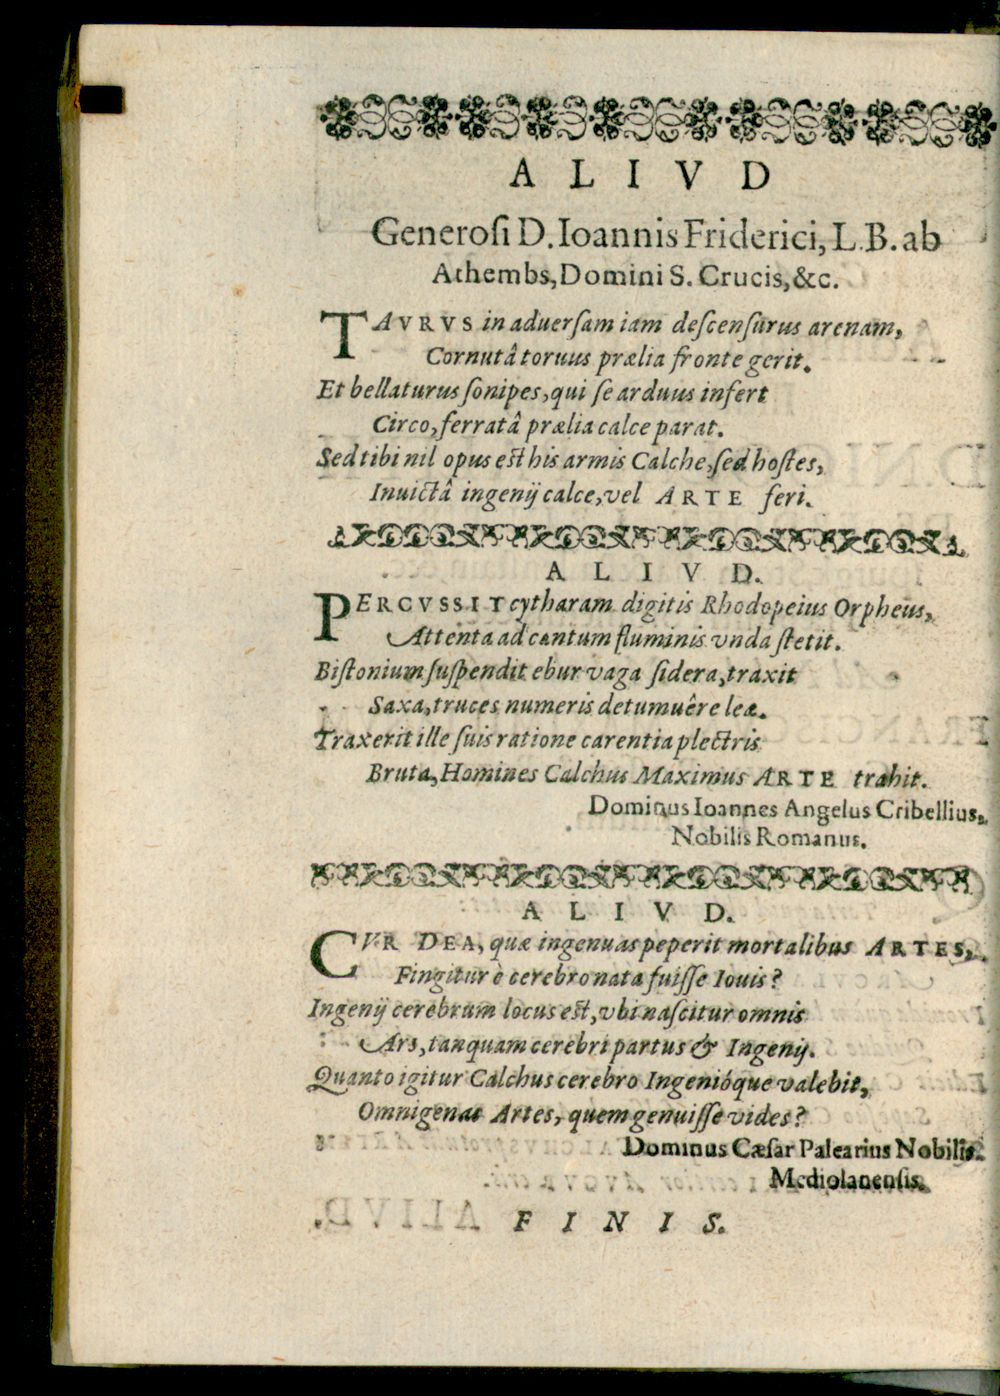 ALIVD
Generoſi D. Ioannis Friderici, L.B. ab
Athembs, Domini S. Crucis, &c.
TAVRVS in aduerſam iam deſcenſurus arenam,
Cornutâ toruus prælia fronte gerit.
Et bellaturus ſonipes, qui ſe arduus infert
Circo, ferratâ prælia calce parat.
Sed tibi nil opus est his armis Calche, ſed hoſtes,
Inuictâ ingenij calce, vel ARTE feri.
ALIVD.
PERCVSSIT cytharam digitis Rhodopeius Orpheus,
Attenta ad cantum fluminis vnda ſtetit.
Biſtonium ſuſpendit ebur vaga ſidera, traxit
Saxa, truces numeris detumuêre leæ.
Traxerit ille ſuis ratione carentia plectris
Bruta, Homines Calchus Maximus ARTE trahit.
Dominus Ioannes Angelus Cribellius,
Nobilis Romanus.
ALIVD.
CVR DEA, quæ ingenuas peperit mortalibus ARTES,
Fingitur è cerebro nata fuiſſe Iouis?
Ingenij cerebrum locus est, vbi naſcitur omnis
Ars, tanquam cerebri partus & Ingenij.
Quanto igitur Calchus cerebro Ingenióque valebit,
Omnigenas Artes, quem genuiſſe vides?
Dominus Cæſar Palearius Nobilis
Mediolanenſis.
FINIS.